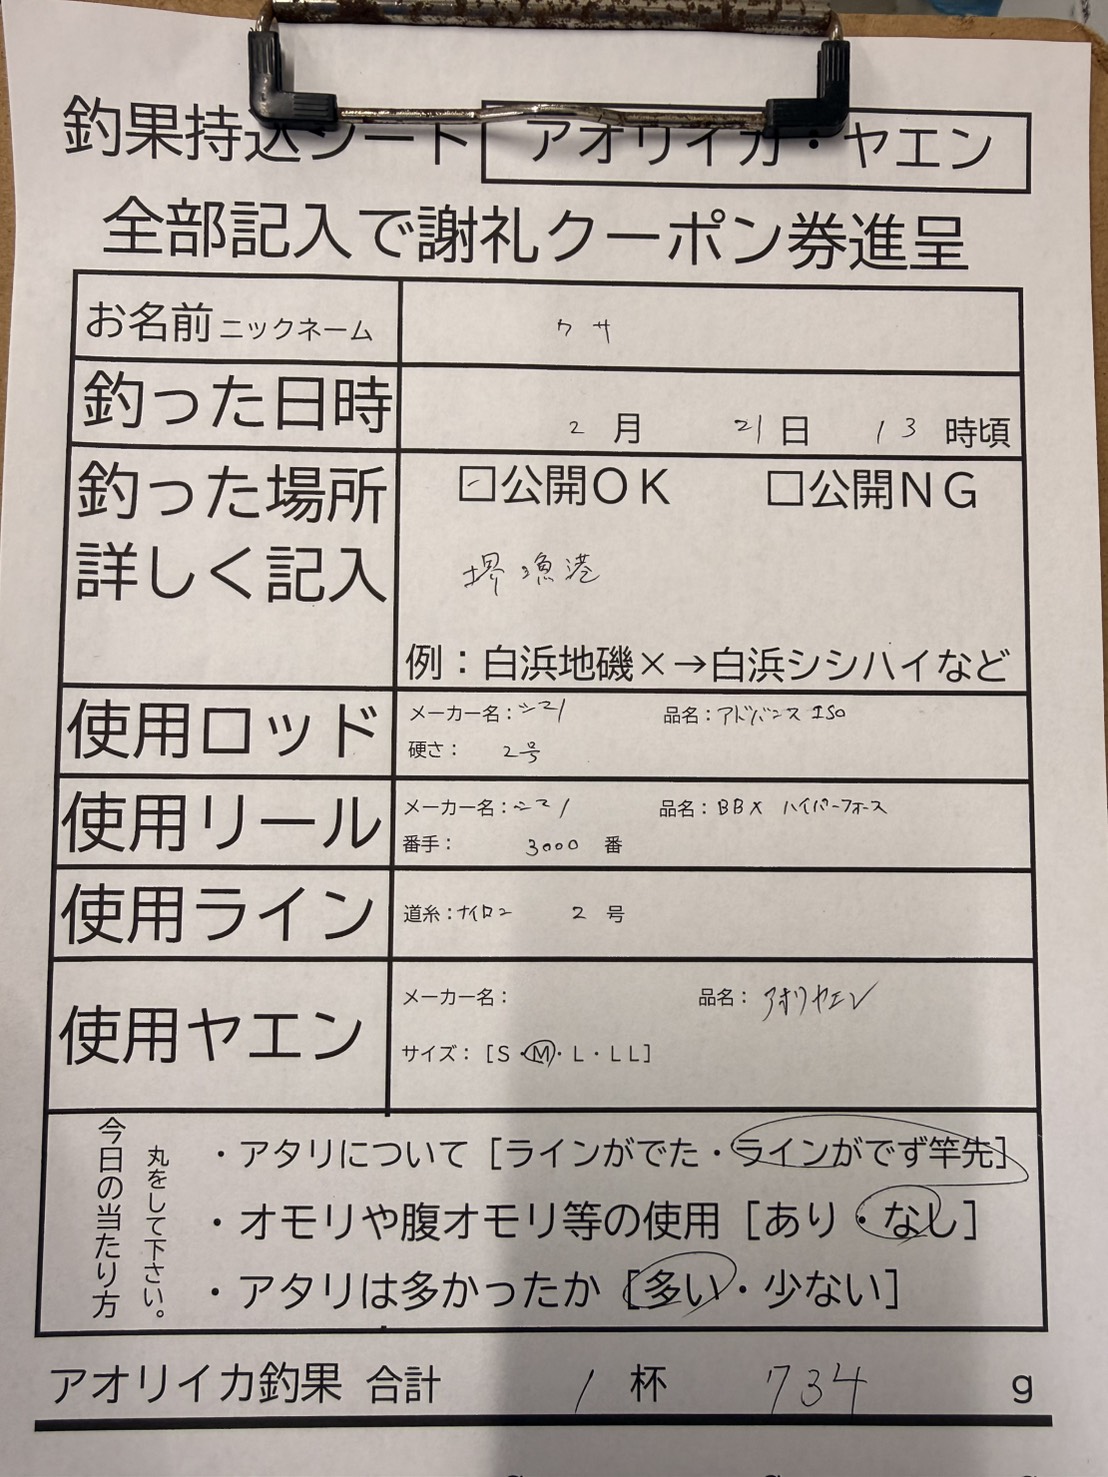 釣果持込シート アオリイカ・ヤエン
全部記入で謝礼クーポン券進呈
お名前 ニックネーム クサ
釣った日時 2月 21日 13時頃
釣った場所 詳しく記入
☑公開OK □公開NG
堺漁港
例：白浜地磯×→白浜シシハイなど
使用ロッド
メーカー名：シマノ 品名：アドバンス ISO
硬さ： 2号
使用リール
メーカー名：シマノ 品名：BBX ハイパーフォース
番手： 3000 番
使用ライン
道糸：ナイロン 2 号
使用ヤエン
メーカー名： 品名：アオリヤエン
サイズ：［S・M・L・LL］
今日の当たり方
丸をして下さい。
・アタリについて［ラインがでた・ラインがでず竿先］
・オモリや腹オモリ等の使用［あり・なし］
・アタリは多かったか［多い・少ない］
アオリイカ釣果 合計 1 杯 734 g